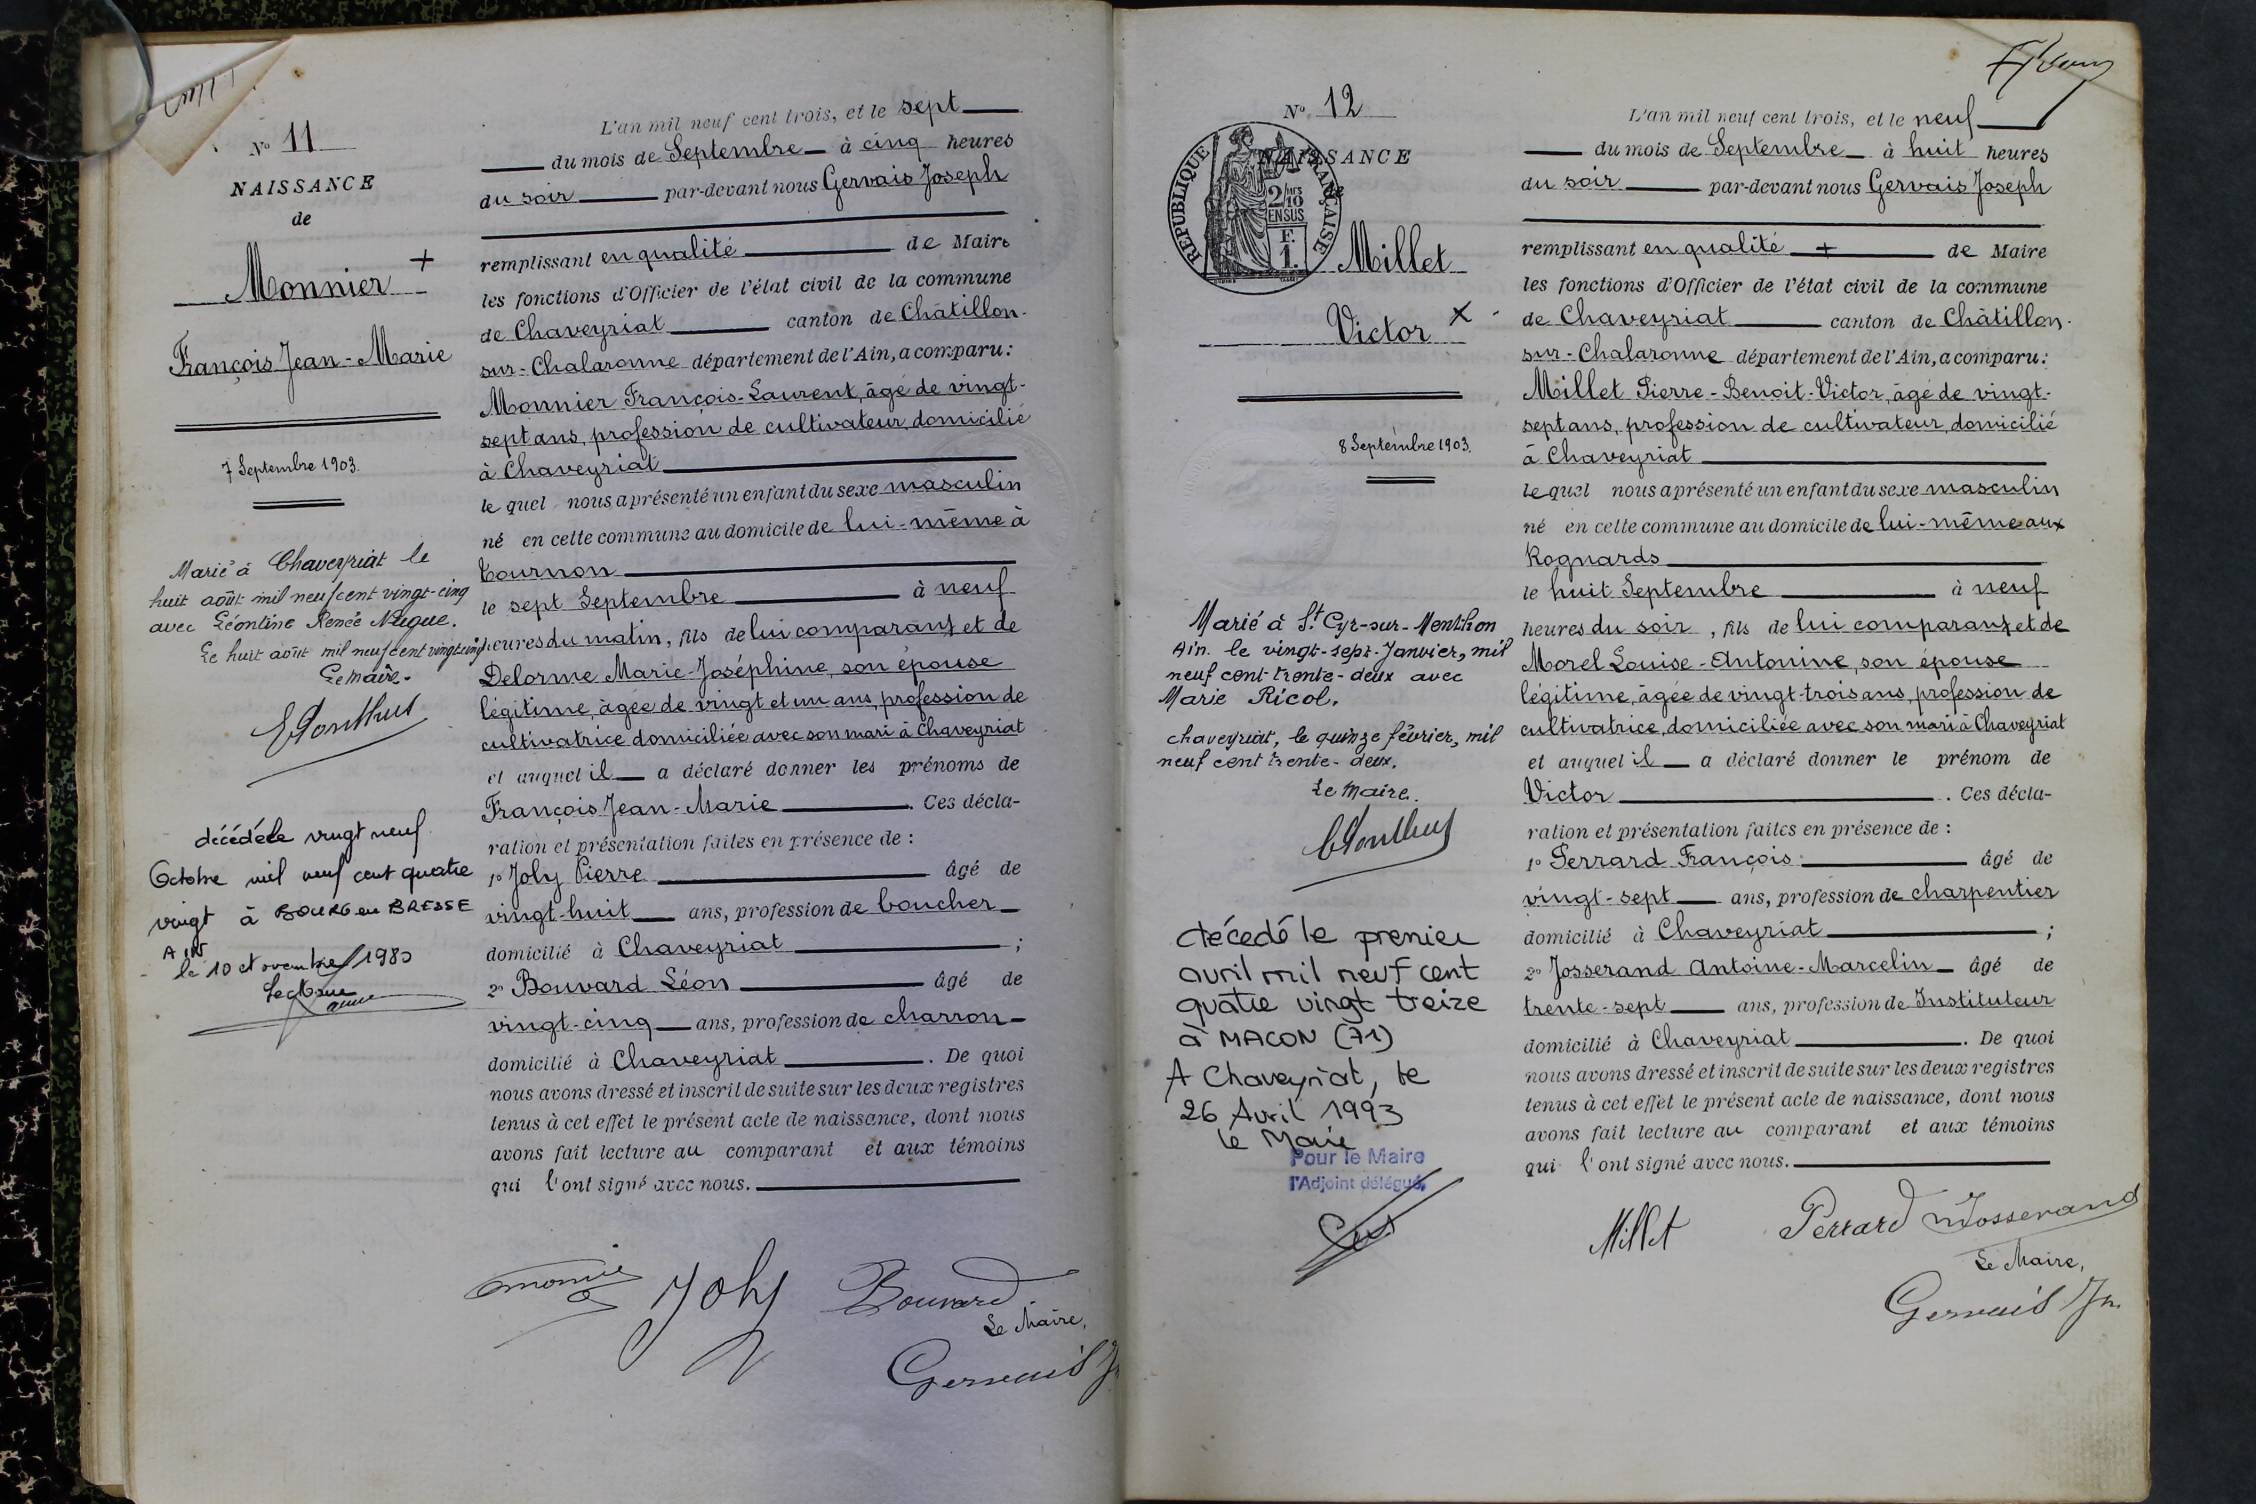 N° 11
NAISSANCE
de
Monnier
François Jean-Marie
7 Septembre 1903.
Marié à Chaveyriat le
huit août mil neuf cent vingt-cinq
avec Léontine Renée Nugue.
Le huit août mil neuf cent vingt cinq
Le maire.
décédé le vingt neuf
Octobre mil neuf cent quatre
vingt à BOURG en BRESSE
AIN
le 10 novembre 1980
L'an mil neuf cent trois, et le sept
du mois de Septembre à cinq heures
du soir par-devant nous Gervais Joseph
remplissant en qualité de Maire
les fonctions d'Officier de l'état civil de la commune
de Chaveyriat canton de Châtillon-
sur-Chalaronne département de l'Ain, a comparu:
Monnier François-Laurent, âgé de vingt-
sept ans, profession de cultivateur, domicilié
à Chaveyriat
le quel nous a présenté un enfant du sexe masculin
né en cette commune au domicile de lui-même à
Tournon
le sept Septembre à neuf
heures du matin, fils de lui comparant et de
Delorme Marie-Joséphine, son épouse
légitime, âgée de vingt et un ans, profession de
cultivatrice domiciliée avec son mari à Chaveyriat
et auquel il a déclaré donner les prénoms de
François Jean-Marie. Ces décla-
ration et présentation faites en présence de :
1° Joly Pierre âgé de
vingt-huit ans, profession de boucher
domicilié à Chaveyriat ;
2° Bouvard Léon âgé de
vingt-cinq ans, profession de charron
domicilié à Chaveyriat. De quoi
nous avons dressé et inscrit de suite sur les deux registres
tenus à cet effet le présent acte de naissance, dont nous
avons fait lecture au comparant et aux témoins
qui l'ont signé avec nous.
Monnier Joly Bouvard
Le Maire,
Gervais Jh
N° 12
NAISSANCE
de
RÉPUBLIQUE FRANÇAISE
2/10 EN SUS
F. 1.
Millet
Victor
8 Septembre 1903.
Marié à St Cyr-sur-Menthon
Ain. le vingt-sept-Janvier, mil
neuf cent-trente-deux avec
Marie Ricol.
chaveyriat, le quinze février, mil
neuf cent trente-deux.
Le Maire.
décédé le premier
avril mil neuf cent
quatre vingt treize
à MACON (71)
A Chaveyriat, le
26 Avril 1993
le Maire
Pour le Maire
l'Adjoint délégué,
L'an mil neuf cent trois, et le neuf
du mois de Septembre à huit heures
du soir par-devant nous Gervais Joseph
remplissant en qualité de Maire
les fonctions d'Officier de l'état civil de la commune
de Chaveyriat canton de Châtillon-
sur-Chalaronne département de l'Ain, a comparu:
Millet Pierre-Benoit-Victor, âgé de vingt-
sept ans, profession de cultivateur, domicilié
à Chaveyriat
le quel nous a présenté un enfant du sexe masculin
né en cette commune au domicile de lui-même aux
Rognards
le huit Septembre à neuf
heures du soir, fils de lui comparant et de
Morel Louise-Antonine, son épouse
légitime, âgée de vingt-trois ans, profession de
cultivatrice, domiciliée avec son mari à Chaveyriat
et auquel il a déclaré donner le prénom de
Victor. Ces décla-
ration et présentation faites en présence de :
1° Perrard François âgé de
vingt-sept ans, profession de charpentier
domicilié à Chaveyriat ;
2° Josserand Antoine-Marcelin âgé de
trente-sept ans, profession de Instituteur
domicilié à Chaveyriat. De quoi
nous avons dressé et inscrit de suite sur les deux registres
tenus à cet effet le présent acte de naissance, dont nous
avons fait lecture au comparant et aux témoins
qui l'ont signé avec nous.
Millet Perrard Josserand
Le Maire,
Gervais Jh